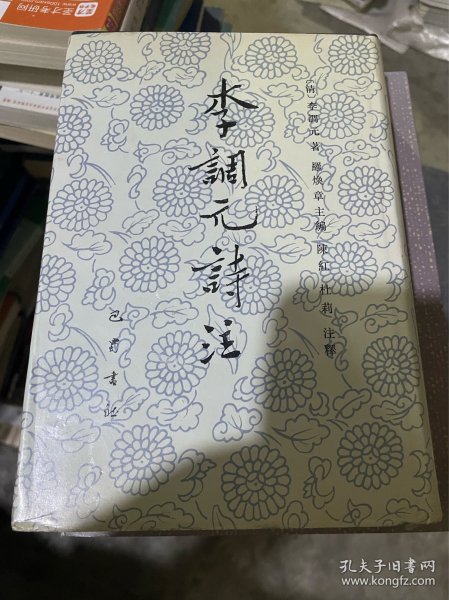 李調元詩注
〔清〕李調元著 羅煥章主編 陳紅 杜莉 注釋
巴蜀書社
圣才考研网
孔夫子旧书网
www.kongfz.com